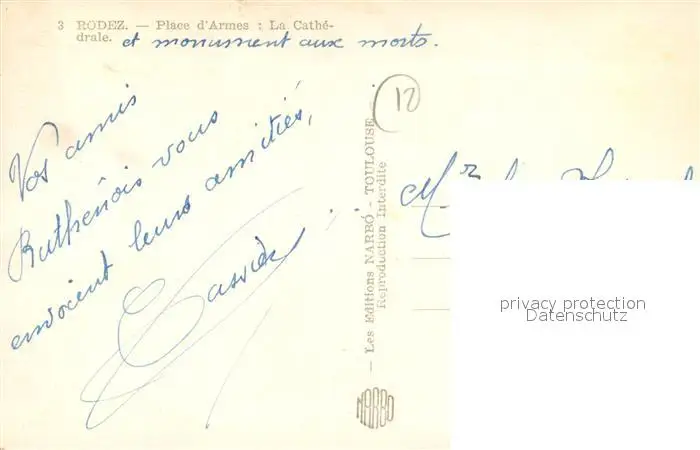 3 RODEZ. — Place d'Armes : La Cathé-
drale. et monument aux morts.
12
Vos amis
Ruthénois vous
envoient leurs amitiés,
— Les Editions NARBO - TOULOUSE
Reproduction Interdite
NARBO
Mr
privacy protection
Datenschutz